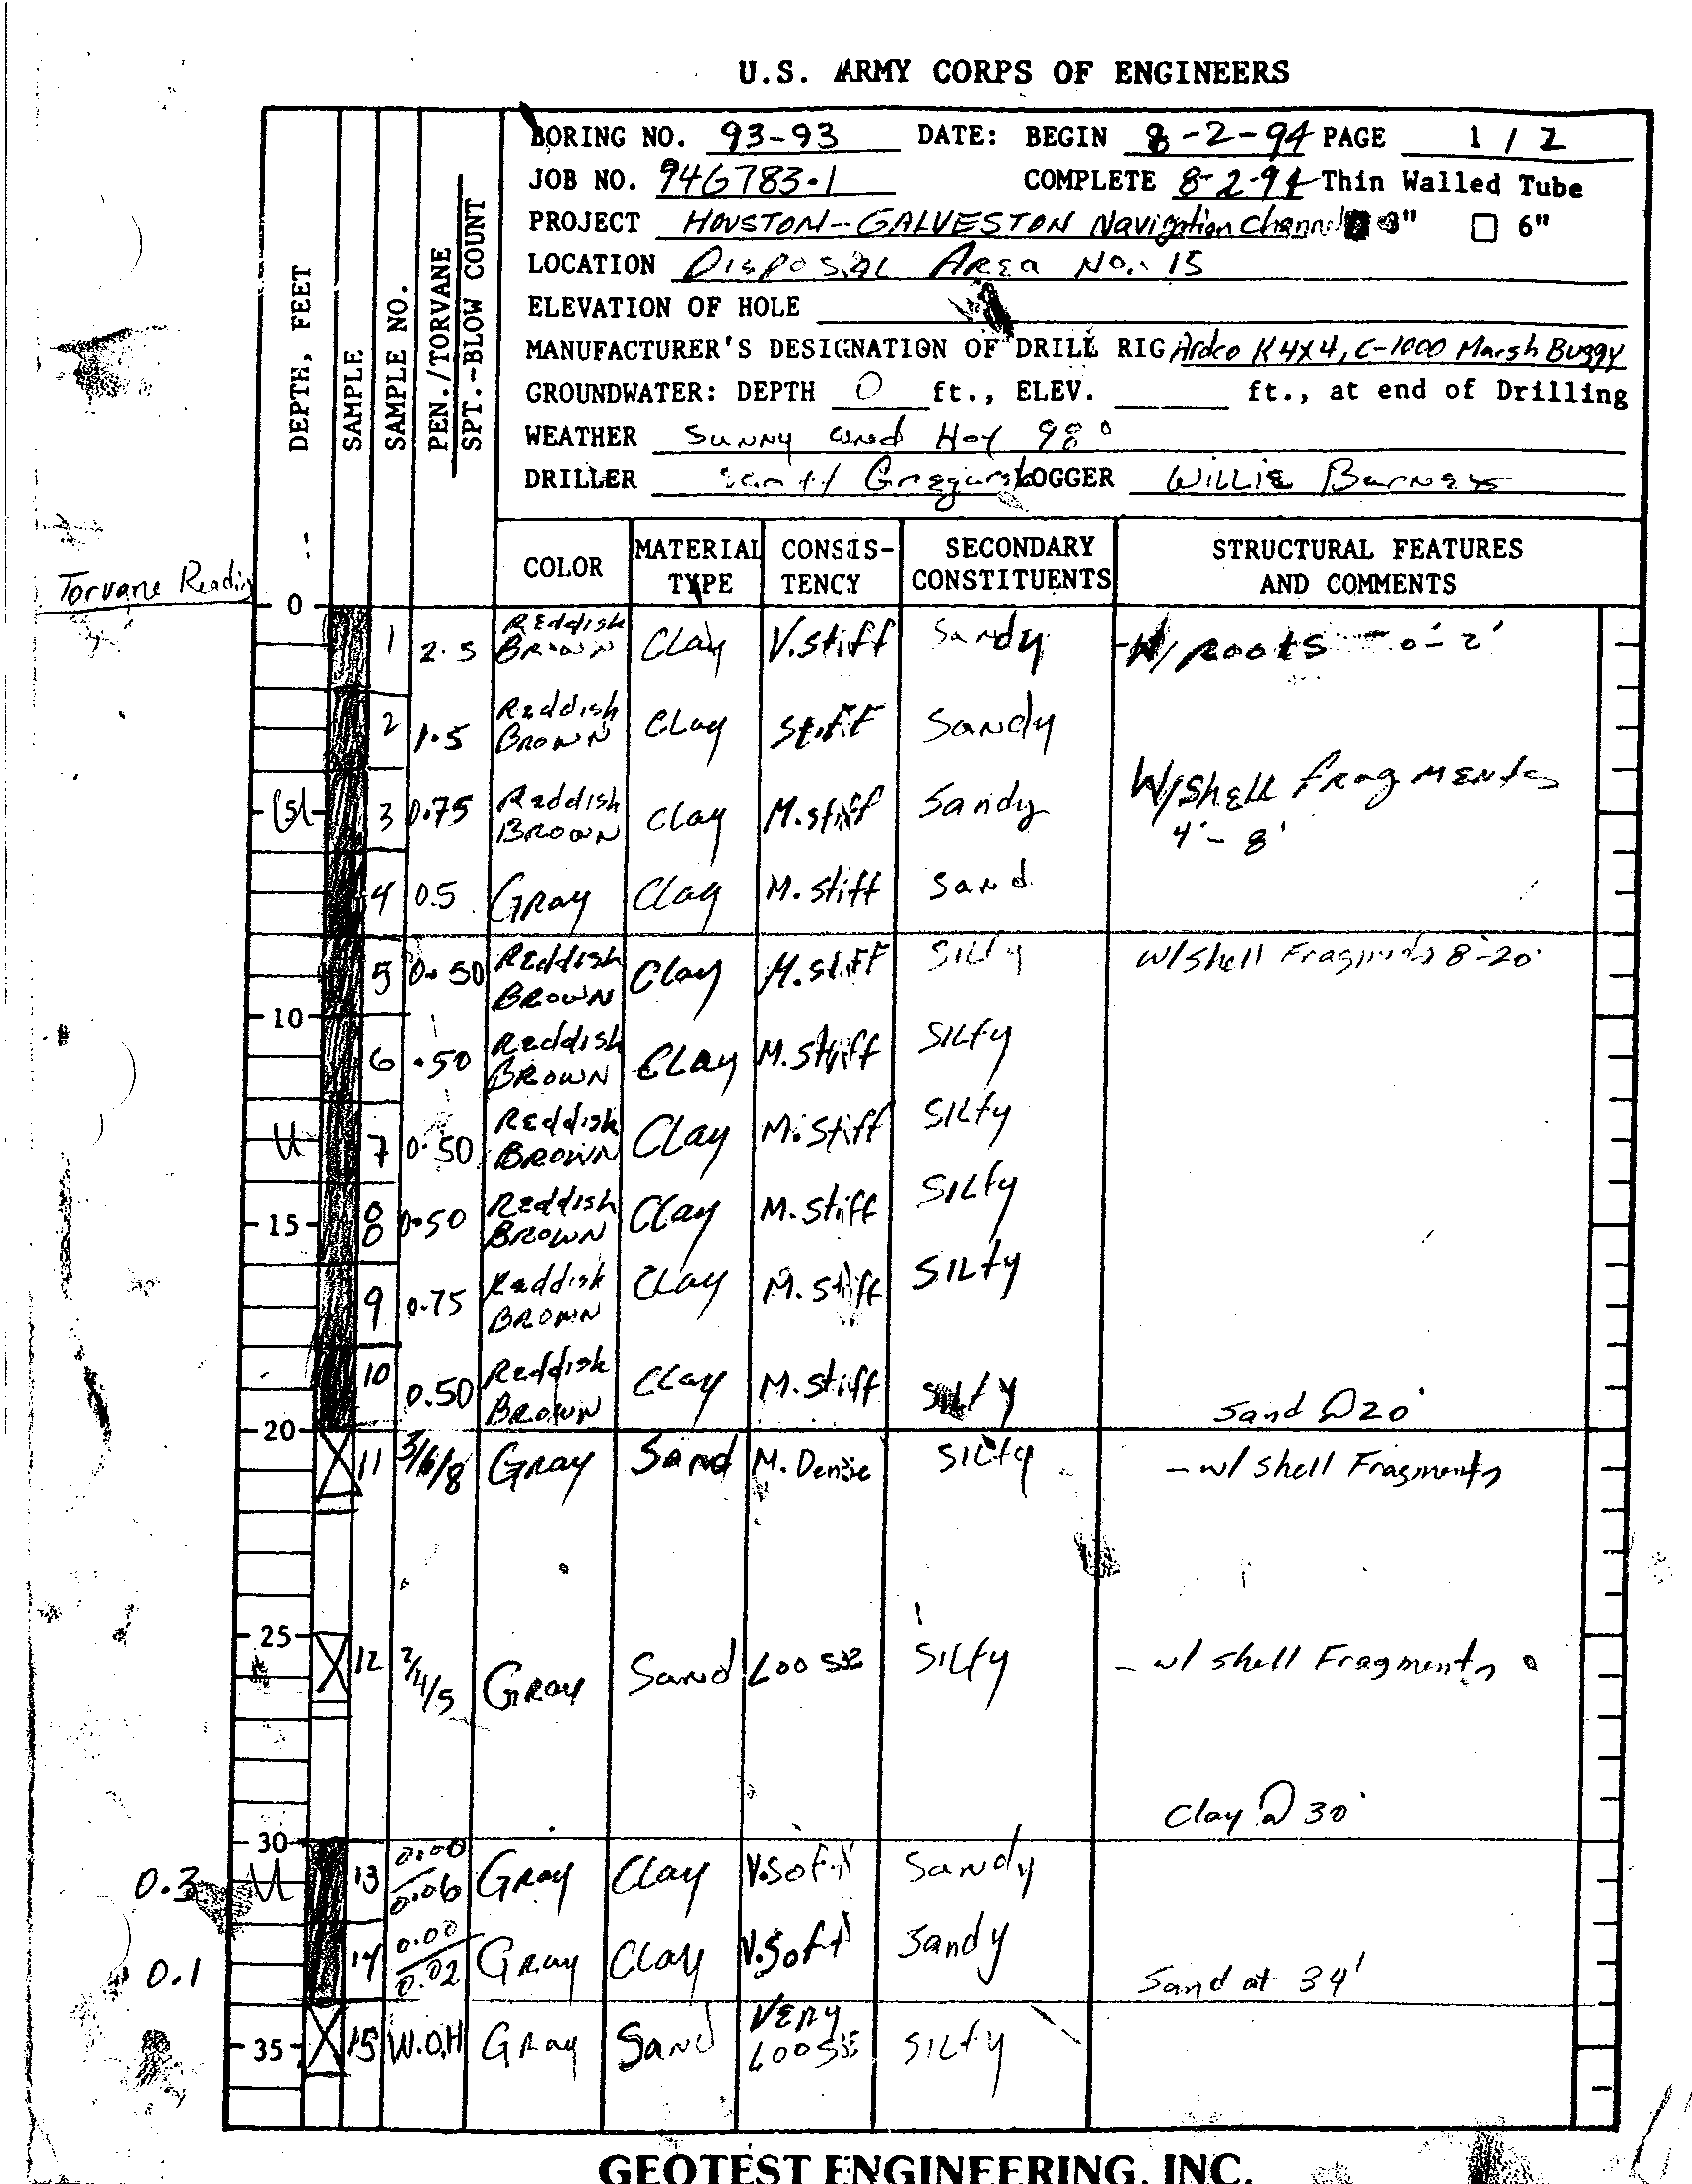 U.S. ARMY CORPS OF ENGINEERS
BORING NO. 93-93 DATE: BEGIN 8-2-94 PAGE 1 / 2
JOB NO. 94G783.1 COMPLETE 8-2-94 Thin Walled Tube
PROJECT HOUSTON-GALVESTON Navigation Channel 3" 6"
LOCATION Disposal Area No. 15
ELEVATION OF HOLE
MANUFACTURER'S DESIGNATION OF DRILL RIG Ardco K 4X4, C-1000 Marsh Buggy
GROUNDWATER: DEPTH 0 ft., ELEV. ft., at end of Drilling
WEATHER Sunny and Hot 98°
DRILLER LOGGER Willie Barnes
DEPTH, FEET SAMPLE SAMPLE NO. PEN./TORVANE SPT.-BLOW COUNT
COLOR MATERIAL TYPE CONSIS-TENCY SECONDARY CONSTITUENTS STRUCTURAL FEATURES AND COMMENTS
Torvane Reading
0
1 2.5 Reddish Brown Clay V.stiff Sandy -W/ Roots 0'-2'
2 1.5 Reddish Brown Clay Stiff Sandy
W/Shell fragments
5 3 0.75 Reddish Brown Clay M.stiff Sandy 4'-8'
4 0.5 Gray Clay M. stiff Sand
5 0.50 Reddish Brown Clay M.stiff Silty w/shell Fragments 8-20'
10
6 .50 Reddish Brown Clay M.stiff Silty
U 7 0.50 Reddish Brown Clay M.Stiff Silty
15 8 0.50 Reddish Brown Clay M.stiff Silty
9 0.75 Reddish Brown Clay M.stiff Silty
10 0.50 Reddish Brown Clay M.stiff Silty Sand @ 20'
20
11 3/6/8 Gray Sand M. Dense Silty - w/ shell Fragments
25
12 3/4/5 Gray Sand Loose Silty - w/ shell Fragments
Clay @ 30'
30
0.3 U 13 0.00/0.06 Gray Clay V.Soft Sandy
0.1 14 0.00/0.02 Gray Clay V.Soft Sandy Sand at 34'
35 15 W.O.H Gray Sand Very Loose Silty
GEOTEST ENGINEERING, INC.